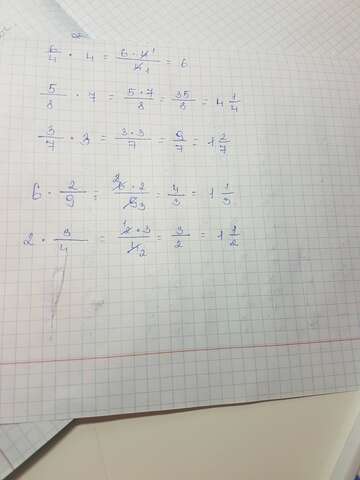 6/4 · 4 = 6·4¹/4₁ = 6
5/8 · 7 = 5·7/8 = 35/8 = 4 1/4
3/7 · 3 = 3·3/7 = 9/7 = 1 2/7
6 · 2/9 = ²6·2/9₃ = 4/3 = 1 1/3
2 · 3/4 = ¹2·3/4₂ = 3/2 = 1 1/2